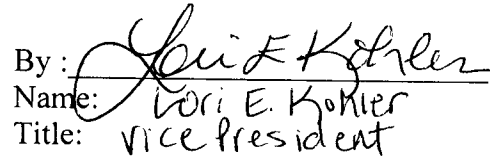 By : Lori E Kohler
Name: Lori E. Kohler
Title: Vice President